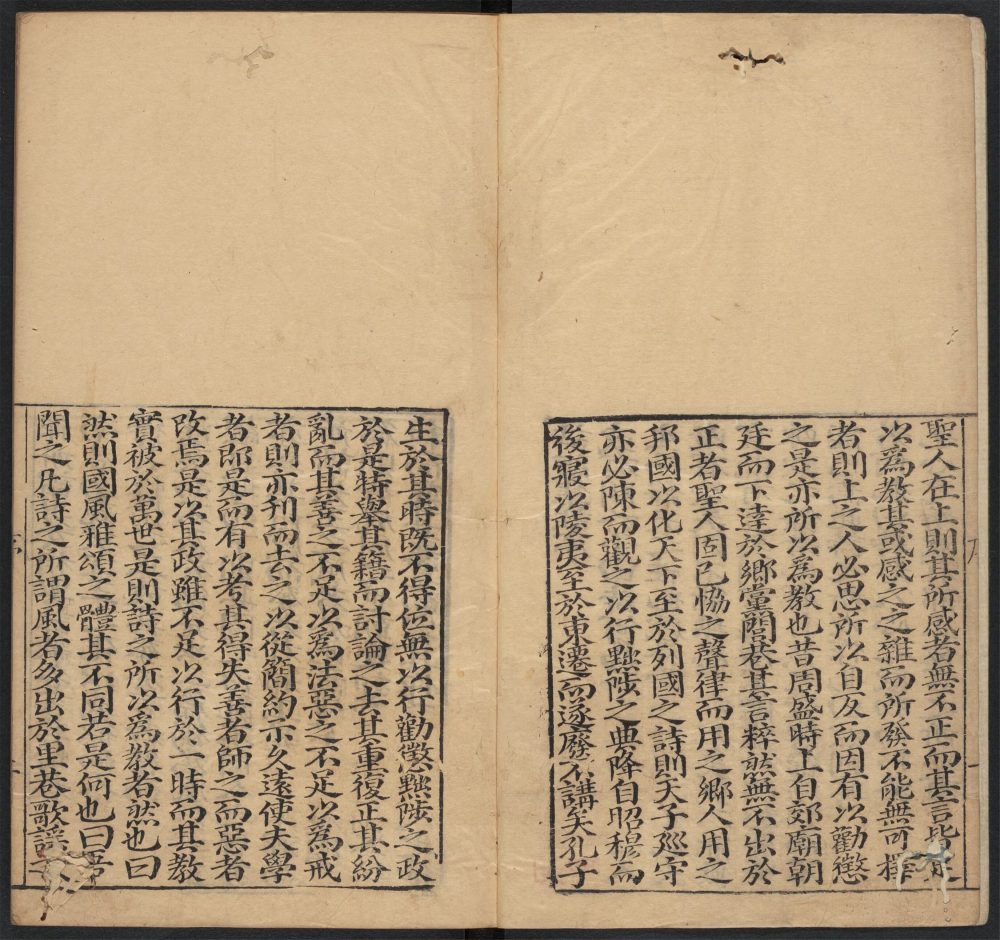 聖人在上則其所感者無不正而其言皆足
以爲教其或感之之雜而所發不能無可擇
者則上之人必思所以自反而因有以勸懲
之是亦所以爲教也昔周盛時上自郊廟朝
廷而下達於鄉黨閭巷其言粹然無不出於
正者聖人固已恊之聲律而用之鄉人用之
邦國以化天下至於列國之詩則天子廵守
亦必陳而觀之以行黜陟之典降自昭穆而
後寖以陵夷至於東遷而遂廢不講矣孔子
生於其時旣不得位無以行勸懲黜陟之政
於是特舉其籍而討論之去其重復正其紛
亂而其善之不足以爲法惡之不足以爲戒
者則亦刊而去之以從簡約示久遠使夫學
者即是而有以考其得失善者師之而惡者
改焉是以其政雖不足以行於一時而其教
實被於萬世是則詩之所以爲教者然也曰
然則國風雅頌之體其不同若是何也曰吾
聞之凡詩之所謂風者多出於里巷歌謠